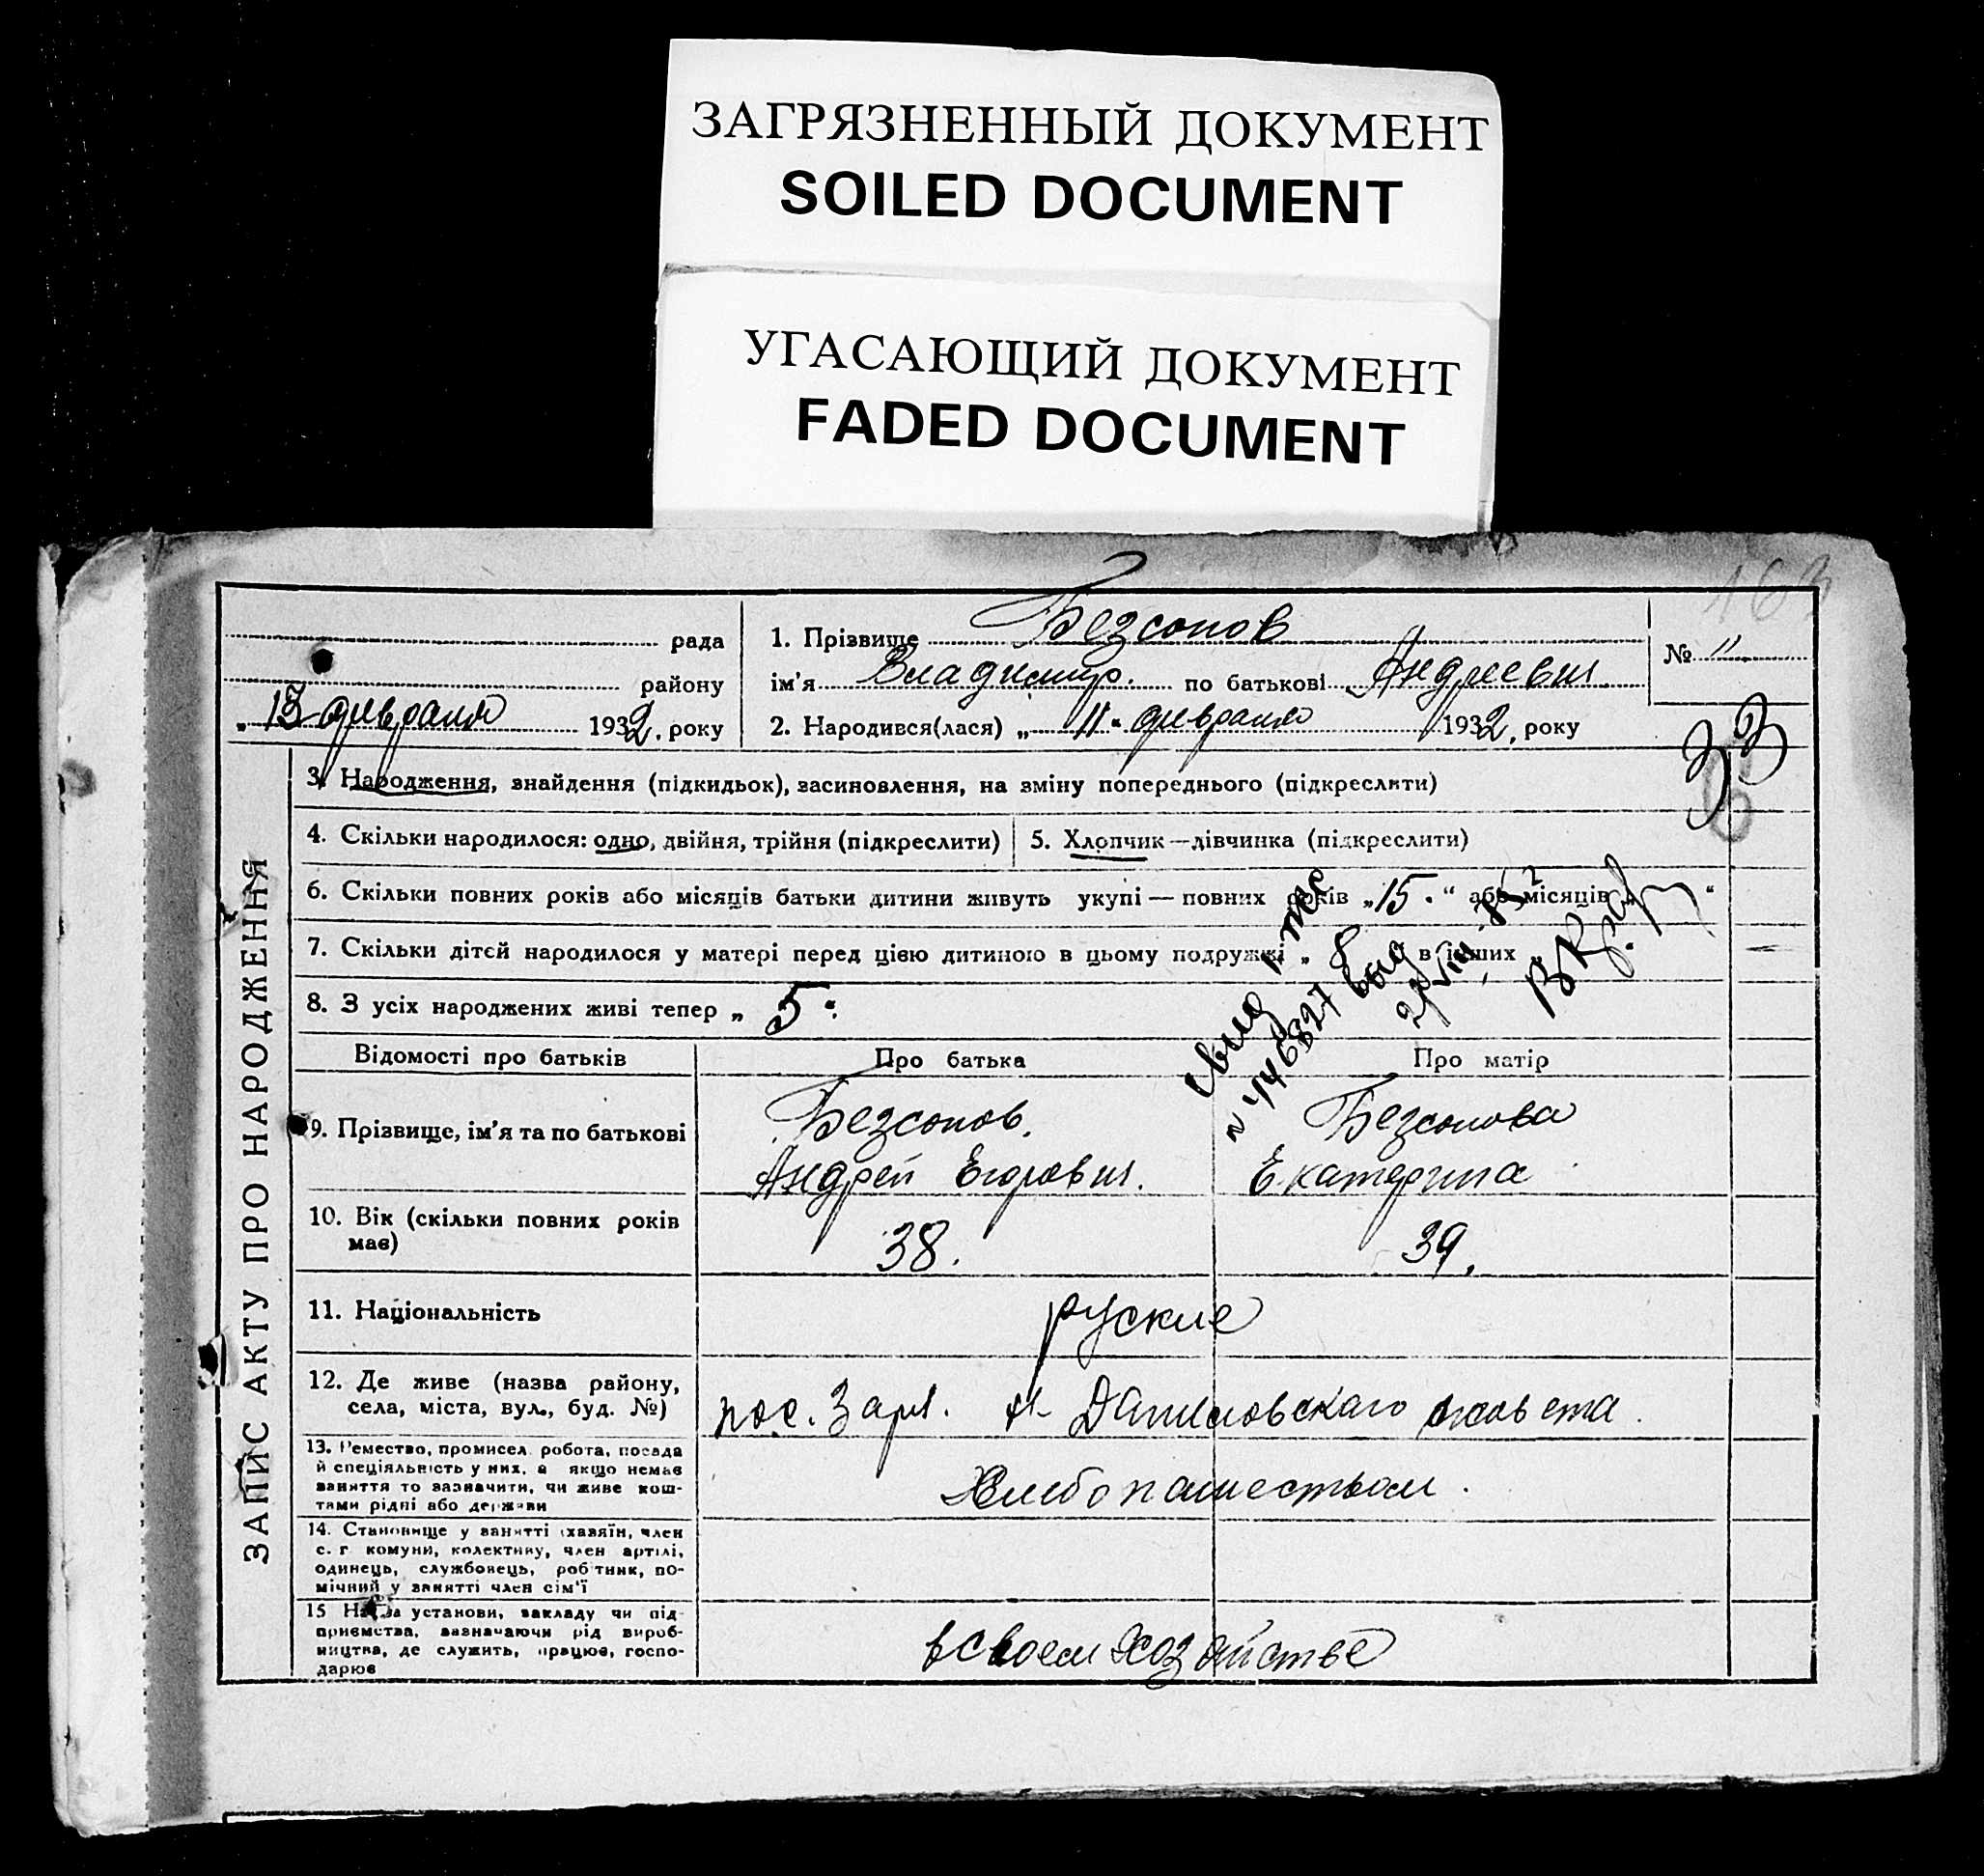 ЗАГРЯЗНЕННЫЙ ДОКУМЕНТ
SOILED DOCUMENT
УГАСАЮЩИЙ ДОКУМЕНТ
FADED DOCUMENT
163
ЗАПИС АКТУ ПРО НАРОДЖЕННЯ
рада
району
„13 февраля 1932. року
1. Прізвище Безсонов
ім'я Владимир. по батькові Андреевич
2. Народився(лася) „11" февраля 1932. року
№ 11
33
3. Народження, знайдення (підкидьок), засиновлення, на зміну попереднього (підкреслити)
4. Скільки народилося: одно, двійня, трійня (підкреслити)
5. Хлопчик—дівчинка (підкреслити)
6. Скільки повних років або місяців батьки дитини живуть укупі — повних років „15." або місяців „ "
7. Скільки дітей народилося у матері перед цією дитиною в цьому подружжі „ 8 в інших „ —
8. З усіх народжених живі тепер „ 5."
Відомості про батьків Про батька Про матір
9. Прізвище, ім'я та по батькові
Безсонов. Безсонова
Андрей Егорович. Екатерина
10. Вік (скільки повних років
має) 38. 39.
11. Національність руские
12. Де живе (назва району,
села, міста, вул., буд. №) пос. Заря. Даниловскаго
13. Ремество, промисел, робота, посада
й спеціяльність у них, а якщо немає
заняття то зазначити, чи живе кош-
тами рідні або держави
Хлебопашеством.
14. Становище у занятті (хазяїн, член
с.-г. комуни, колективу, член артілі,
одинець, службовець, робітник, по-
мічний у занятті член сім'ї
15 Назва установи, закладу чи під-
приємства, зазначаючи рід вироб-
ництва, де служить, працює, госпо-
дарює
в своем хозяйстве